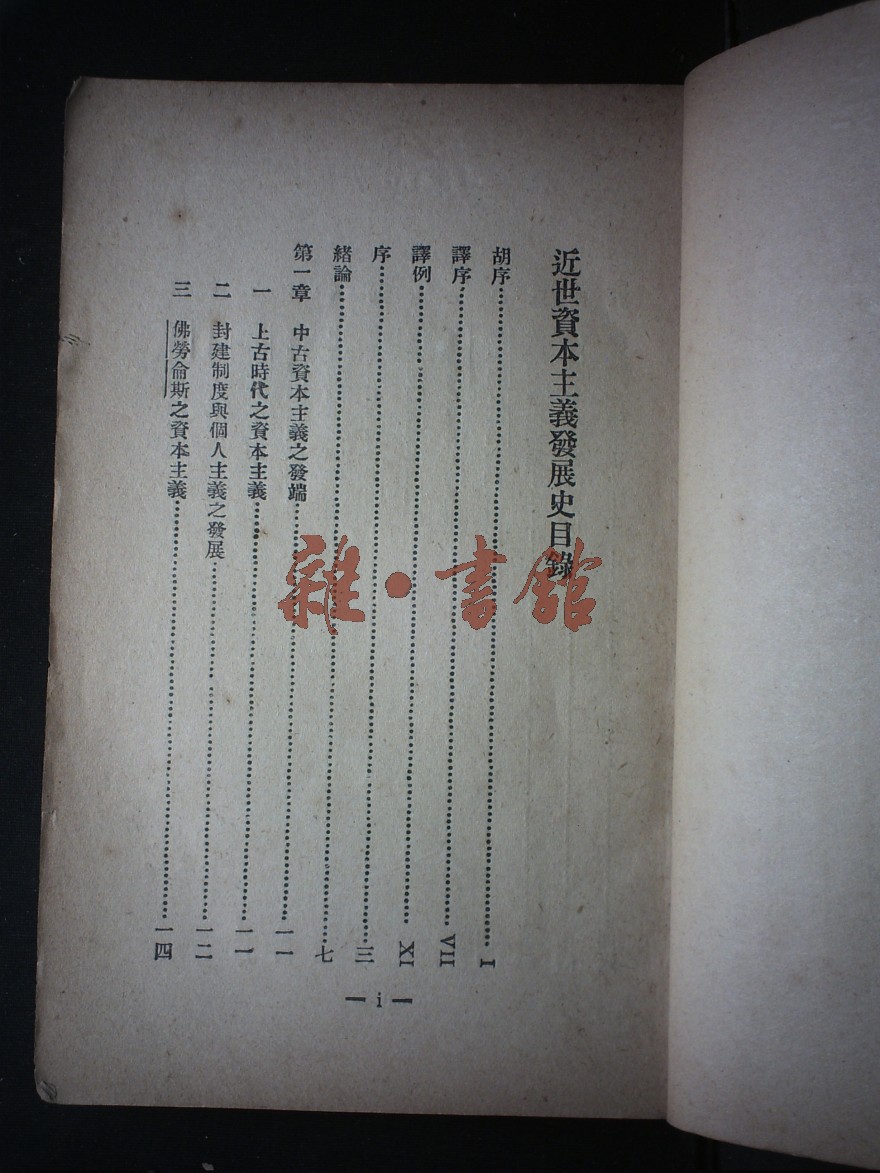 近世資本主義發展史目錄
胡序……I
譯序……VII
譯例……XI
序……三
緒論……七
第一章 中古資本主義之發端……一一
一 上古時代之資本主義……一一
二 封建制度與個人主義之發展……一二
三 佛勞侖斯之資本主義……一四
— i —
雜·書館